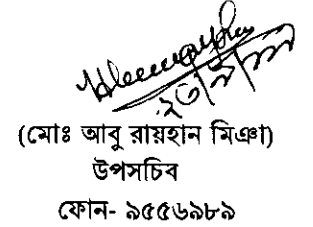 (মোঃ আবু রায়হান মিঞা)
উপসচিব
ফোন- ৯৫৫৬৯৮৯